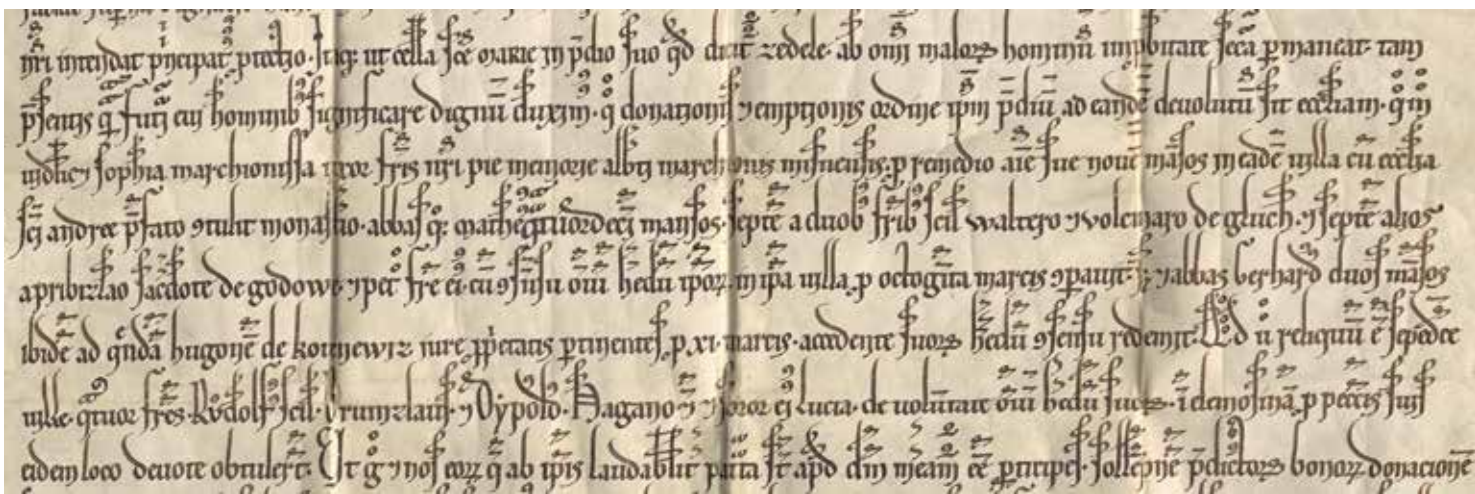 nr̄i intendat p̄ncipat ꝓtectio. Itaq; ut cella sc̄e marie in p̄dio suo qd̄ dicit̄ zedele. ab om̄i maloꝝ hominū inp̄bitate sec̄a ꝑmaneat. tam
p̄sentiƀ q̄ futuri eui hominiƀ significare dignū duxim̄. q̄ donationis ⁊ emptionis ordine ip̄m p̄diū ad eandē deuolutū sit eccl̄iam. qm̄
uidelic⁊ sophia marchionissa uxor fr̄is nr̄i pie memorie alb̄ti marchionis misnensis. ꝑ remedio aīe sue nouē māsos in eadē uilla cū eccl̄ia
sc̄i andree p̄fato ꝯtulit monast̄io. abbas q̄; matheꝰ q̄tuordeci mansos. septē a duob fr̄ib scil̄ Waltero ⁊ uolcmaro de gluch. ⁊ septē alios
a pribizlao sac̄dote de godowe. ⁊ pet̄ fr̄e ei. cū ꝯsensu om̄iū hedū ip̄oꝝ. in ip̄a uilla. ꝑ octoginta marcis ꝯparauit. ⁊ abbas berhard duos māsos
ibidē ad q̄ndā hugonē de kotinewiz iure ꝓp̄etatis ꝑtinentes. ꝑ xi. marcis. accedente suoꝝ hedū ꝯsensu redemit. Qd̄ u reliquū ē sepedc̄e
uille. q̄tuor fr̄es. Rudolf scil̄. Drumzlaus. ⁊ Dypold. Hagano ⁊ soror ei Lucia. de uolūtate om̄iū hedū suoꝝ. ī elemosinā. ꝑ peccatis suis
eidem loco deuote obtulert̄. Ut g̊ ⁊ nos eoꝝ q̄ ab ip̄is laudabilit̄ patᵃta st̄ apd̄ dm̄ meam̄ ēe ꝑticipes. sollēpnē p̄dictoꝝ bonoꝝ donacionē